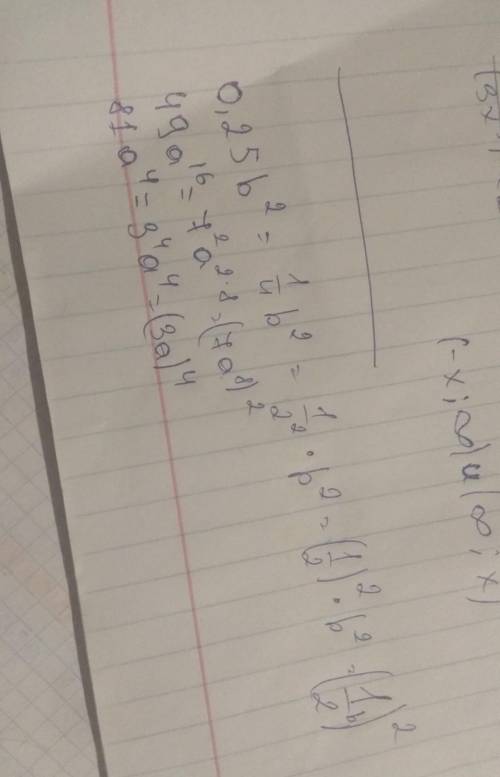 (-x; ∞) и (∞; x)
0,25 b² = 1/4 b² = 1/2² · b² = (1/2)² · b² = (1/2 b)²
49 a¹⁶ = 7² a²·⁸ = (7a⁸)²
81 a⁴ = 3⁴ a⁴ = (3a)⁴